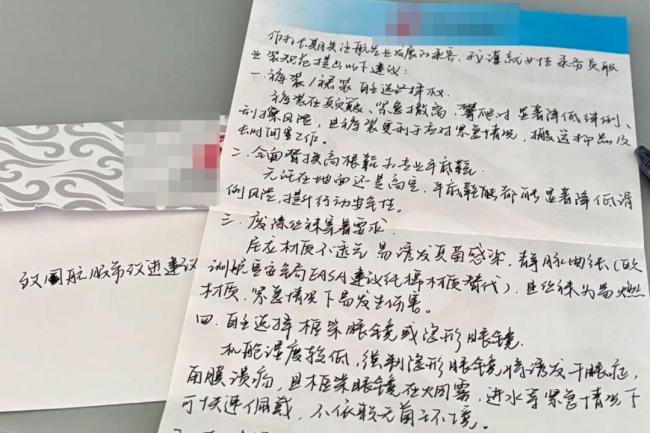 作为长期关注航空业发展的乘客，我谨就女性乘务员职
业装规范提出以下建议：
一.裤装/裙装自主选择权.
裤装在颠簸、紧急撤离、攀爬时显著降低绊倒、
刮擦风险，且裤装更利于应对紧急情况，搬运物品及
长时间客工作。
二.全面替换高跟鞋为专业平底鞋.
无论在地面还是高空，平底鞋都能显著降低滑
倒风险，提升行动安全性。
三.废除丝袜穿着要求.
尼龙材质不透气易诱发真菌感染，静脉曲张（欧
洲航空安全局EASA建议纯棉材质替代），且丝袜为易燃
材质，紧急情况下易发生伤害。
四.自主选择框架眼镜或隐形眼镜.
机舱湿度较低，强制隐形眼镜情诱发干眼症，
角膜溃疡，且框架眼镜在火灾雾，进水等紧急情况下
可快速佩戴，不依赖无菌环境。
致国航服饰改进建议